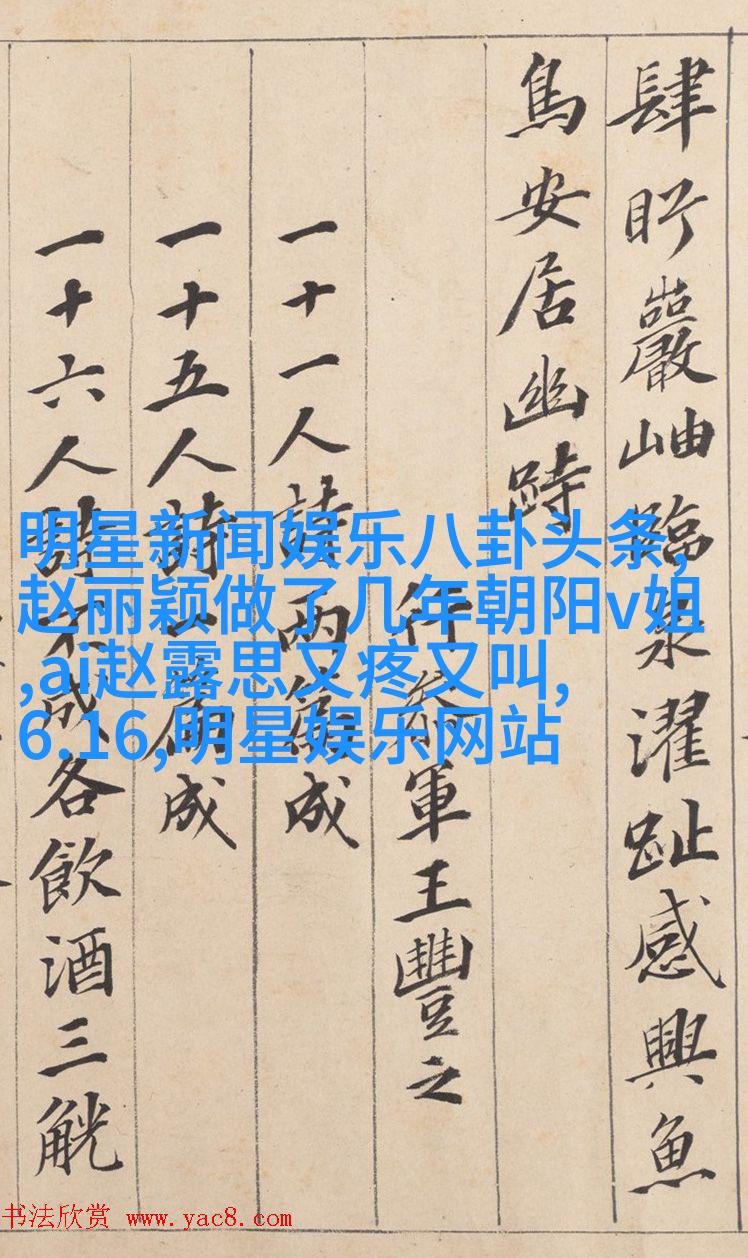 肆眄巖岫臨泉濯趾感興魚
鳥安居幽跱
行參軍王豐之
一十一人詩兩篇成
一十五人詩一篇成
一十六人詩不成各飲酒三觥
明星新闻娱乐八卦头条,
赵丽颖做了几年朝阳v姐
,ai赵露思又疼又叫,
6.16,明星娱乐网站
书法欣赏 www.yac8.com